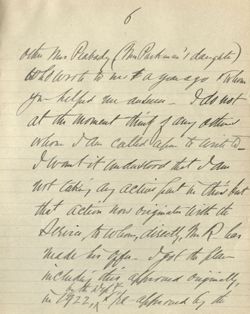 6
other Mrs Peabody (Mrs Parkman's daughter)
who wrote to me a year ago & whom
you helped me answer. I do not
at the moment think of any others
whom I am called upon to write to.
I want it understood that I am
not taking any active part in this but
that action now originates with the
Service, to whom, directly, Mr R. has
made his offer. I got the plan
including this approved originally,
in 1922, & re-approved by the